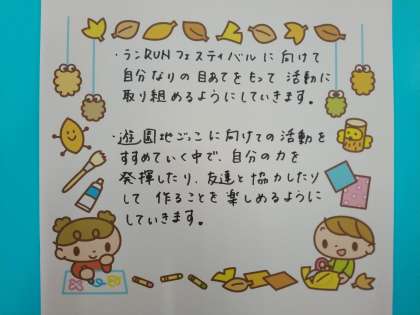 ・ランRUNフェスティバルに向けて
自分なりの目あてをもって活動に
取り組めるようにしていきます。
・遊園地ごっこに向けての活動を
すすめていく中で、自分の力を
発揮したり、友達と協力したり
して作ることを楽しめるように
していきます。